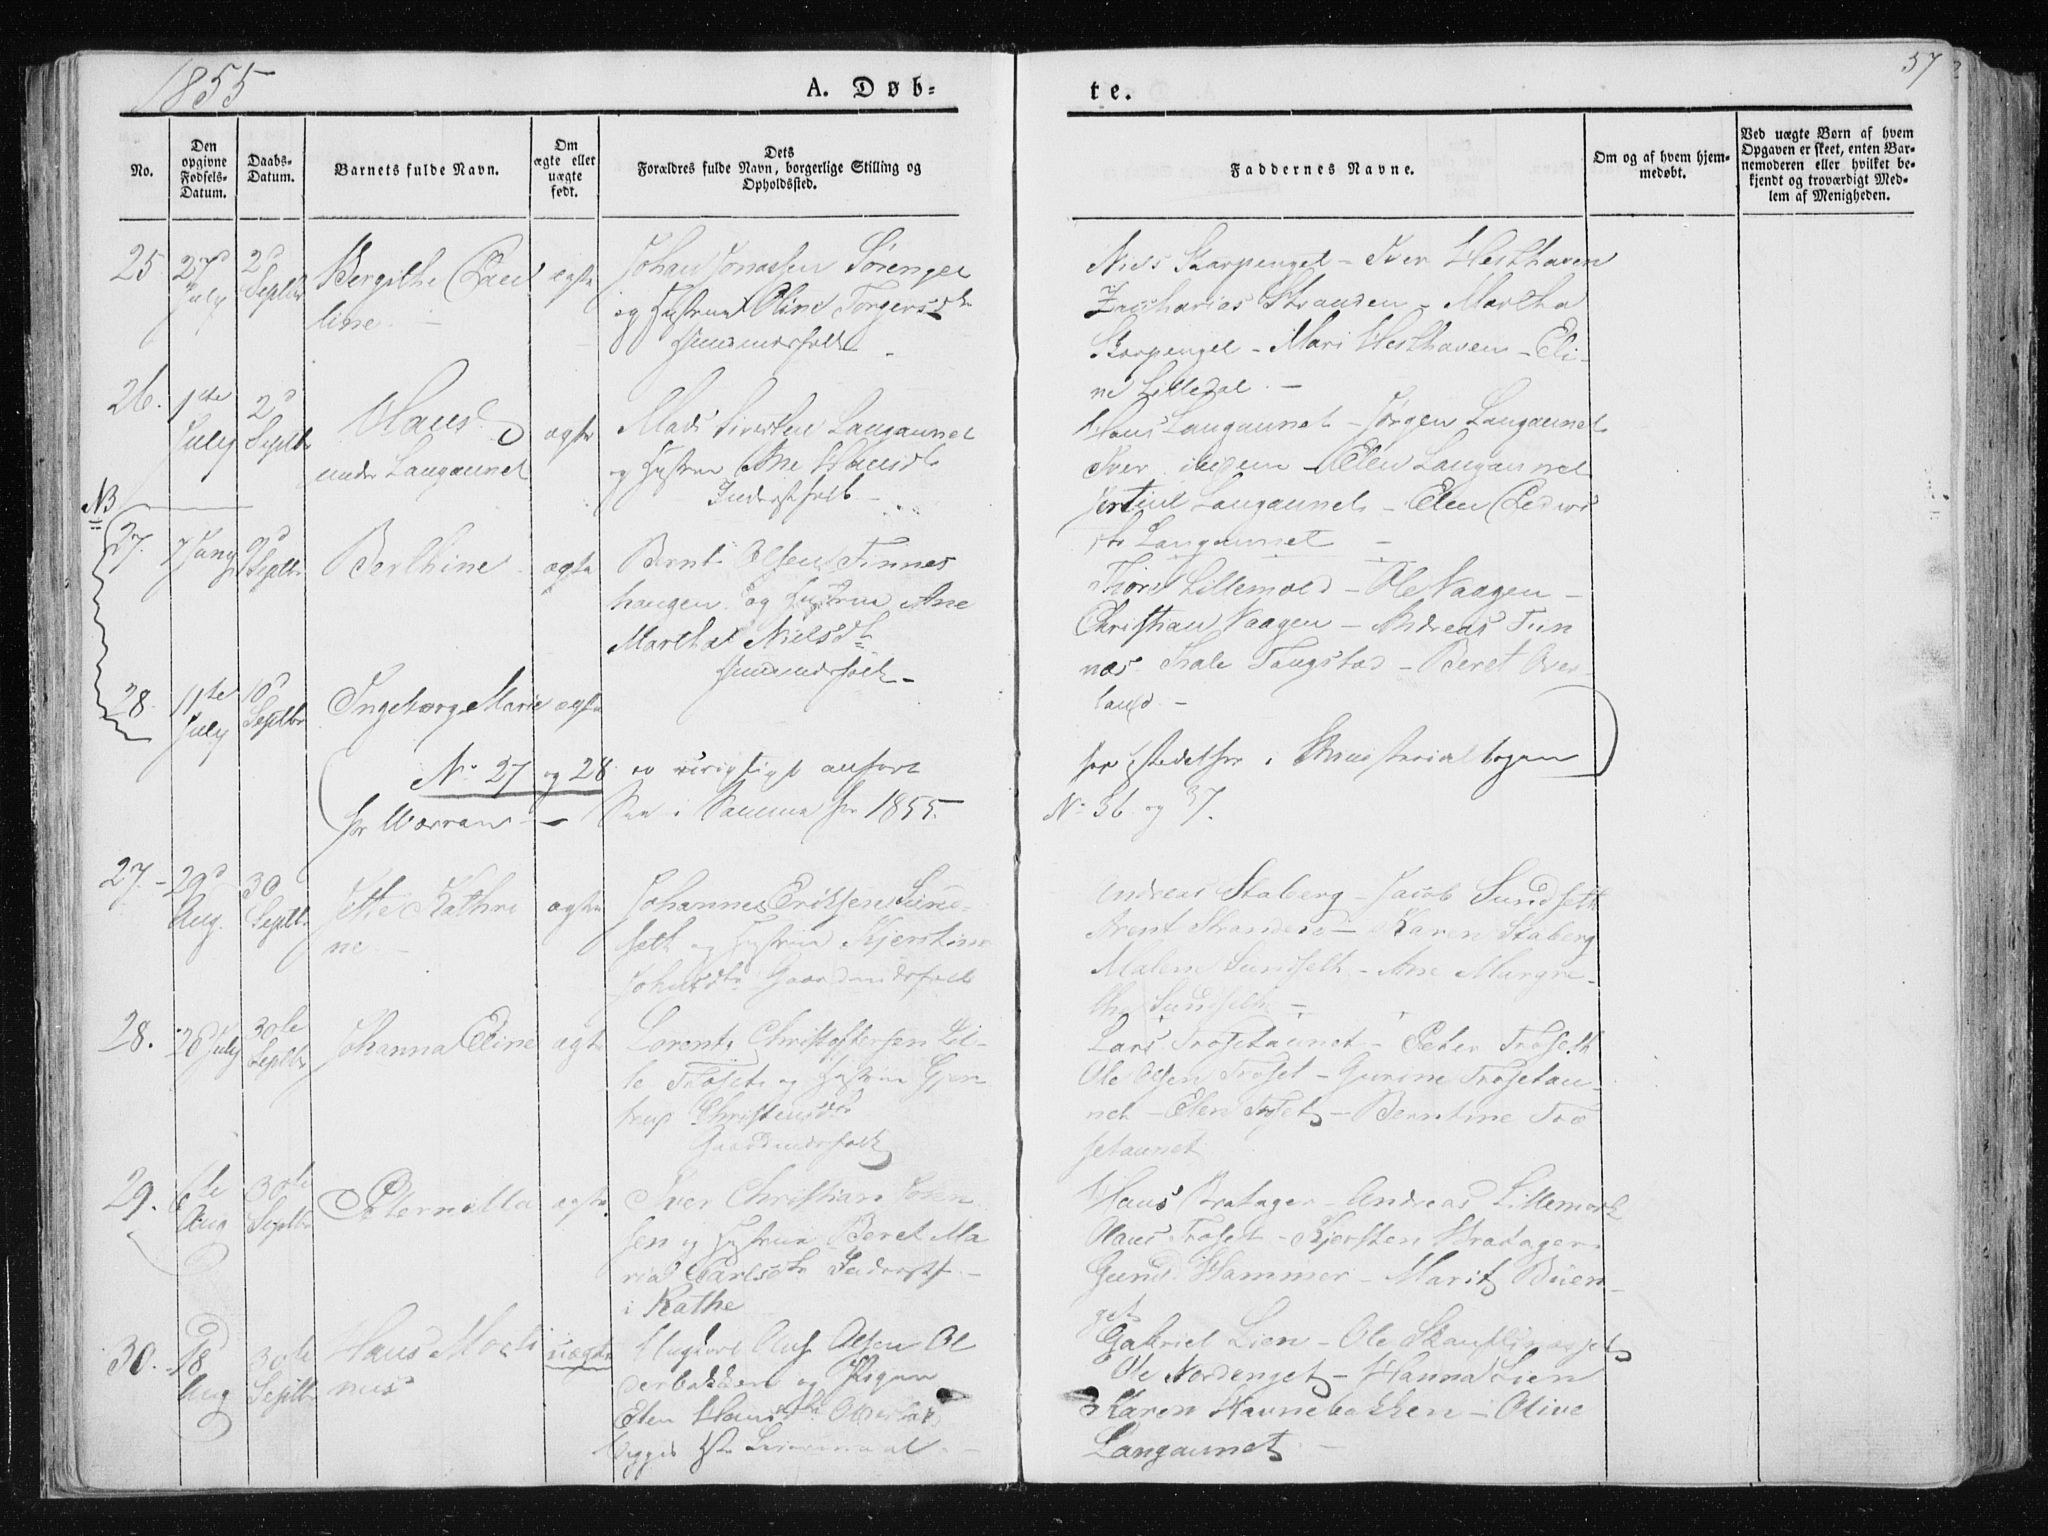 1855
A. Døb-
te.
37
No.
Den opgivne Fødsels-Datum.
Daabs-Datum.
Barnets fulde Navn.
Om ægte eller uægte født.
Dets Forældres fulde Navn, borgerlige Stilling og Opholdssted.
Faddernes Navne.
Om og af hvem hjem-medøbt.
Ved uægte Børn af hvem Opgaven er skeet, enten Bar-nemoderen eller hvilket be-kjendt og troværdigt Med-lem af Menigheden.
25 27d July 2d Septbr
Bergithe
line
ægte
Johan Jonassen Sørenget
og Hustrue Oline Torgersdtr
Huusmandsfolk
Niels Korpenget - Iver Hesthaven
Zacharias Stranden - Martha
Korpenget - Mari Hesthaven - Eli-
ne Lilledal -
26. 1ste July 2d Septbr
Hans
under Langaunet
ægte
Mads Sivertsen Langaunet
og Hustrue Ane Hansdtr
Inderstfolk -
Hans Langaunet - Jørgen Langaunet
Iver - Elen Langaunet
Langaunet - Elen
Langaunet -
NB
27. 7 9d Septbr
Berthine
ægte
Bernt Olsen Finnes
haugen og Hustrue Ane
Martha Nielsdtr
Huusmandsfolk -
Lillemold - Ole Vaagen -
Christian Vaagen - Andreas Fin
næs Taugstad - Beret Over
land -
28 11te July 10d Septbr
Ingeborg Marie
ægte
No 27 og 28 er urigtigt anført
her istedetfor i Ministerialbogen
for Worran - Nr. i Samme for 1855.
No 36 og 37.
27. - 29d Aug. 30 Septbr
Kathri
ne -
ægte
Johannes Eriksen Sund-
seth og Hustrue Kjerstine
Johnsdtr Gaardmandsfolk
Andreas Staberg - Jacob Sundseth
Arent Strande - Karen Staberg
Malene Sundseth - Ane Margre-
the Sundseth -
28. 28 July 30te Septbr
Johanna Eline
ægte
Lorents Christophersen Lil-
le Trøset og Hustrue Gjer-
trup Christensdtr
Gaardmandsfolk
Lars Trøsetaunet - Peter Trøseth
Ole Olsen Trøset - Gurine Trøsetau-
net - Elen Trøset - Berntine Trø
setaunet
29. 6te Aug 30te Septbr
Peternilla
ægte
Iver Christian Johan
sen og Hustrue Beret Ma
ria Carlsdtr Inderstf. -
i Rathe
Hans Bratager - Andreas Lillemark
Hans Trøset - Kjersten Bratager
Hammer - Marit Büen-
get
30. 18 Aug 30te Septbr
Hans Marti
nus
uægte
Ungkarl Oluf Olsen Ol
derbakken og Pigen
Elen Hansdtr
Begges 1ste Leiermaal. -
Gabriel Lien - Ole
Ole Nordenget - Hanna Lien
Karen Havnebakken - Olive
Langaunet -